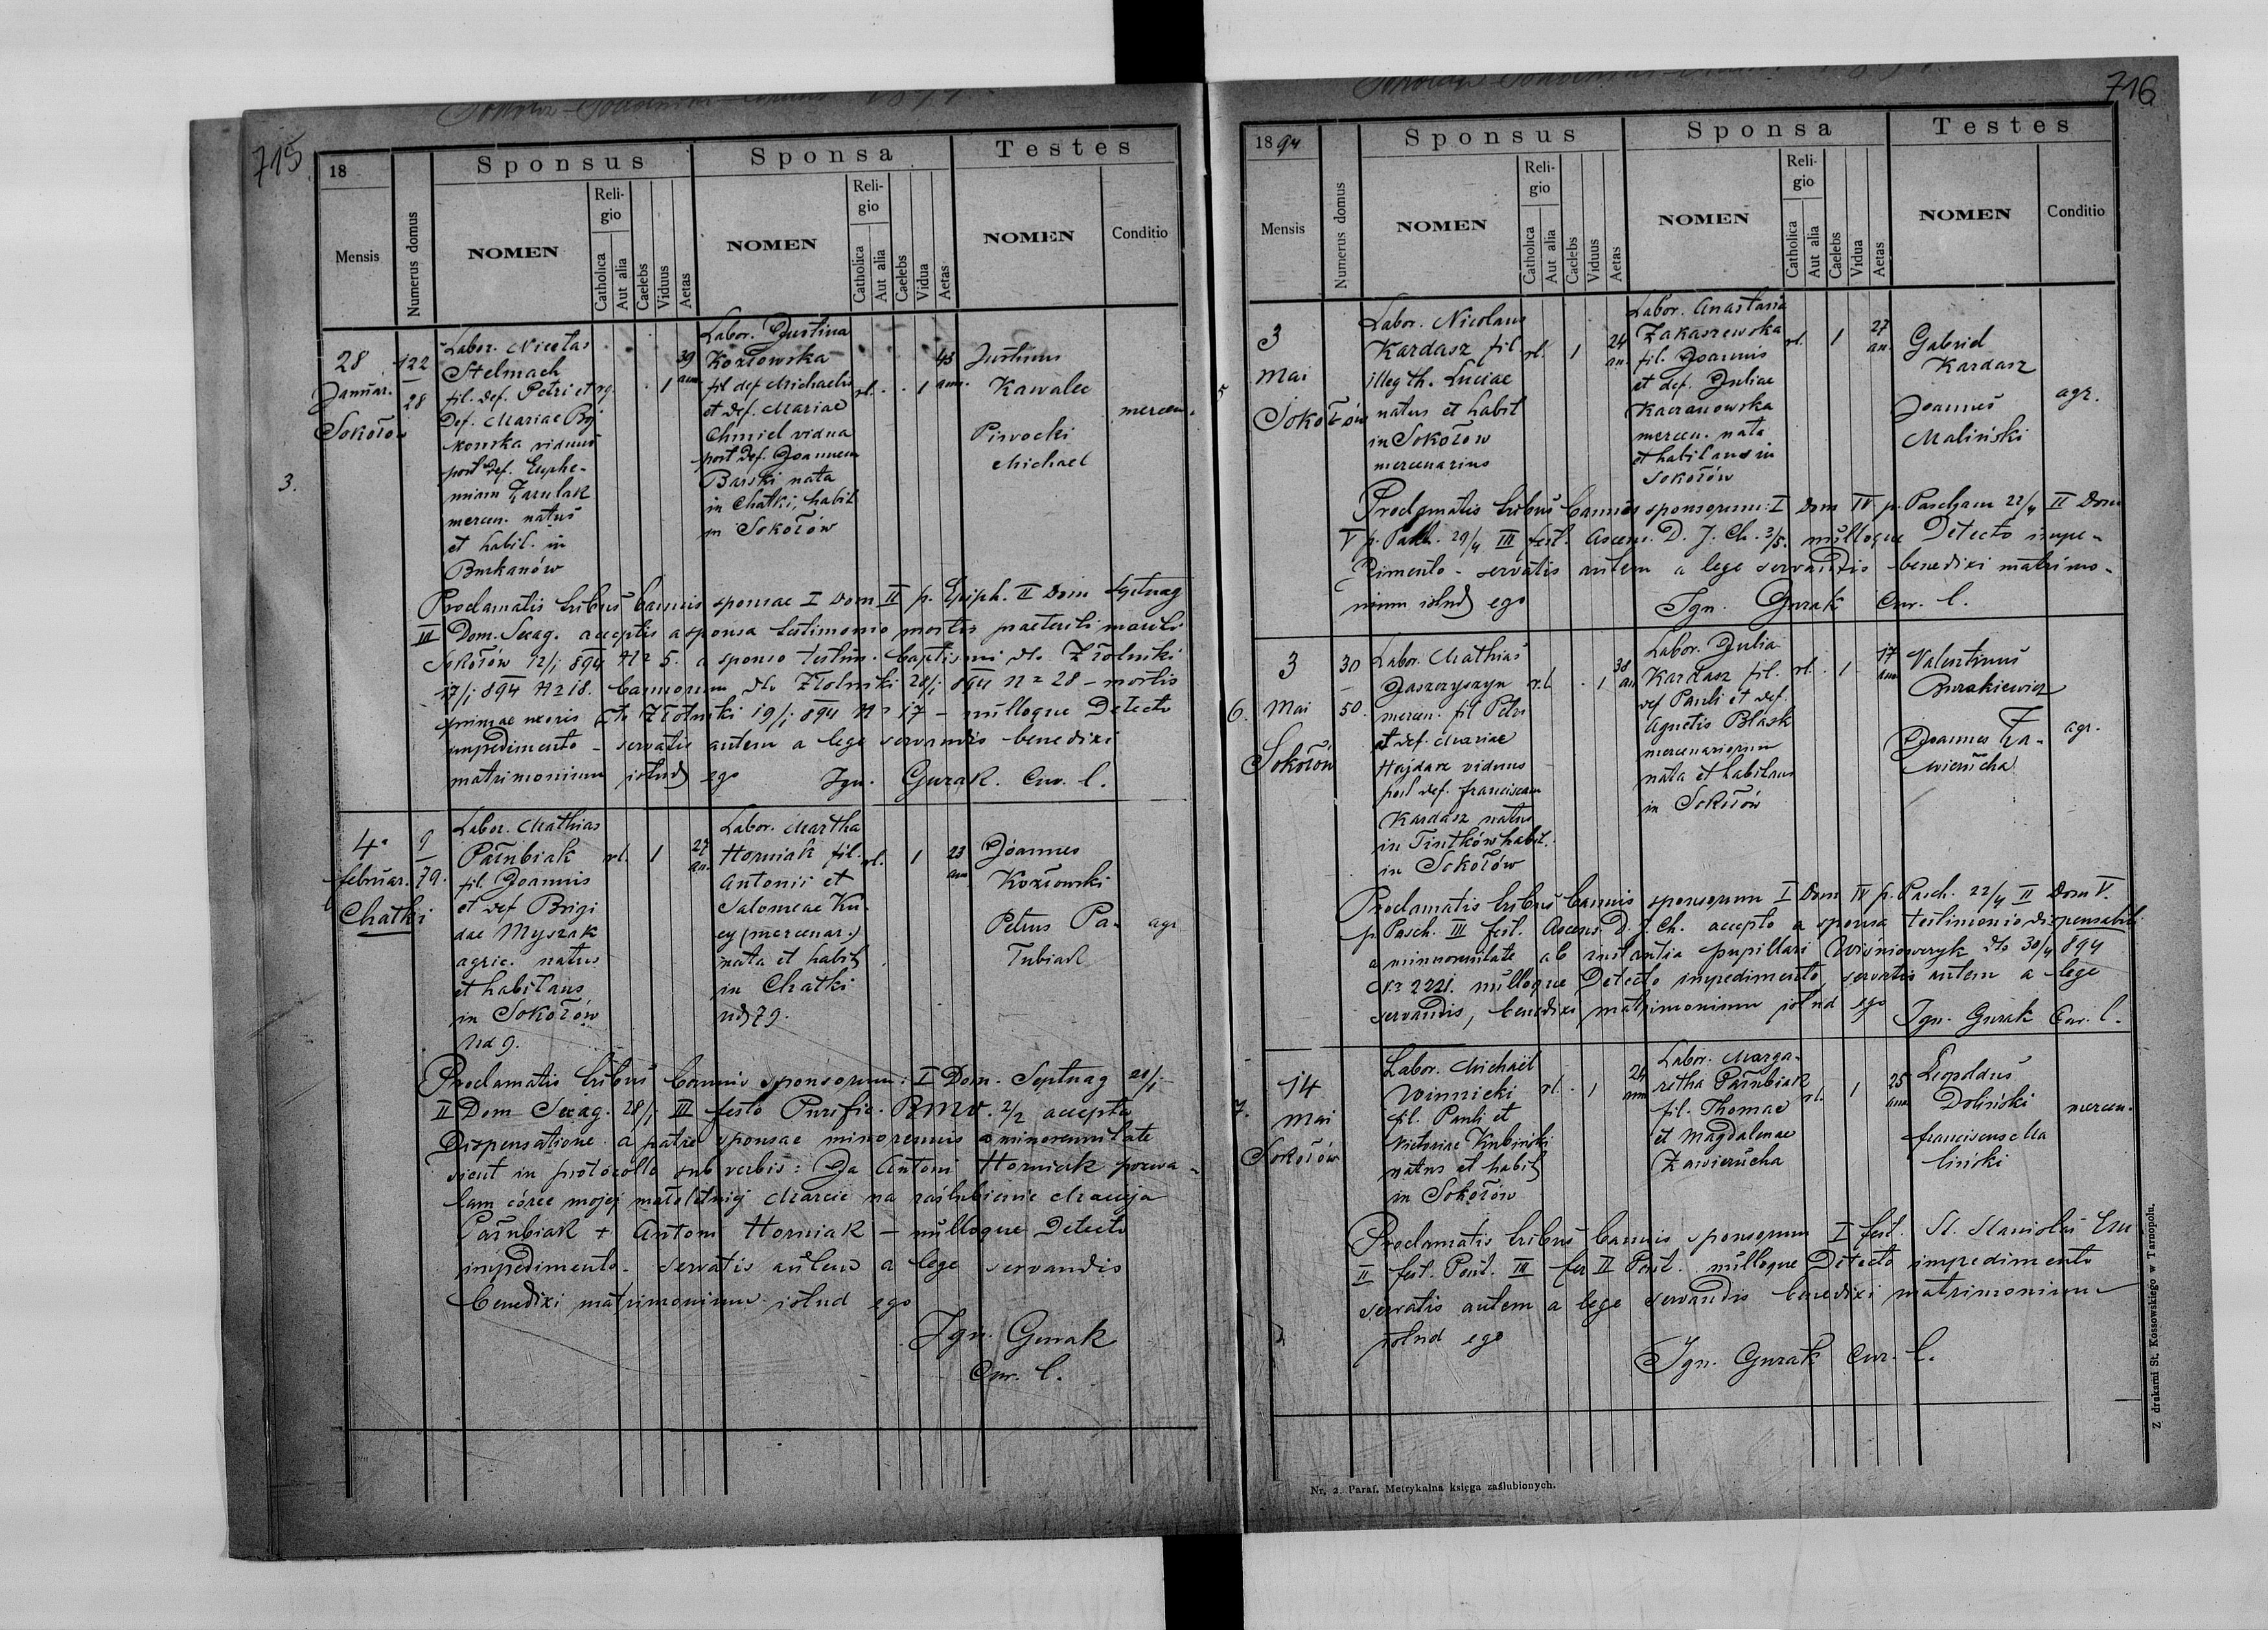 715
18
Sponsus
Sponsa
Testes
Mensis
Numerus domus
NOMEN
Religio
Catholica
Aut alia
Caelebs
Viduus
Aetas
NOMEN
Religio
Catholica
Aut alia
Caelebs
Vidua
Aetas
NOMEN
Conditio
3.
28
Januar.
Sokołów
122
28
Labor. Nicetas
Stelmach
fil. def. Petri et
def. Mariae
viduus
post def. Euphe-
miam Zarulak
mercen. natus
et habit. in
Burkanów
1
39
ann
Labor. Justina
Kozłowska
fil def Michaelis
et def. Mariae
Chmiel vidua
post def. Joannem
Barski nata
in Chatki, habit
in Sokołów
rl.
1
43
ann.
Justinus
Kawalec
Piwocki
Michael
mercen.
Proclamatis tribus bannis sponsae I Dom II p. Epiph. II Dom Septuag
III Dom. Sexag. acceptis a sponsa testimonio mortis praeteriti mariti
Sokołów 12/1 894 No 5. a sponso testim. baptismi dto Złotniki
17/1 894 No 218. bannorum dto Złotniki 28/1 894 No 28 - mortis
primae uxoris dto Złotniki 19/1 894 No 17 - nulloque detecto
impedimento - servatis autem a lege servandis benedixi
matrimonium istud ego Ign. Gurak. Cur. l.
4.
februar.
Chatki
9
79.
Labor. Mathias
Pałubiak
fil. Joannis
et def Brigi
dae Myszak
agric. natus
et habitans
in Sokołów
Nd 9.
rl.
1
27
an.
Labor. Martha
Horniak fil.
Antonii et
Salomeae Ku-
cy (mercenar.)
nata et habit
in Chatki
nd 79.
rl.
1
23
ann
Joannes
Kozłowski
Petrus Pa-
łubiak
agr
Proclamatis tribus bannis sponsorum: I Dom. Septuag 21/1
II Dom Sexag. 28/1 III festo Purific. BMV. 2/2 accepta
Dispensatione a patre sponsae minorennis a minorennitate
sicut in protocollo sub verbis: Ja Antoni Horniak pozwa-
lam córce mojej małoletniej Marcie na zaślubienie Macieja
Pałubiak + Antoni Horniak - nulloque detecto
impedimento - servatis autem a lege servandis
benedixi matrimonium istud ego
Ign. Gurak
Cur. l.
716
1894
Sponsus
Sponsa
Testes
Mensis
Numerus domus
NOMEN
Religio
Catholica
Aut alia
Caelebs
Viduus
Aetas
NOMEN
Religio
Catholica
Aut alia
Caelebs
Vidua
Aetas
NOMEN
Conditio
5
3
Mai
Sokołów
Labor. Nicolaus
Kardasz fil
illegth. Luciae
natus et habit
in Sokołow
mercenarius
rl.
1
24
an.
Labor. Anastasia
Zakaszewska
fil. Joannis
et def. Juliae
Kaczanowska
mercen. nata
et habitans in
Sokołów
rl.
1
27
an.
Gabriel
Kardasz
Joannes
Maliński
agr.
Proclamatis tribus bannis sponsorum: I Dom IV p. Pascham 22/4 II Dom
V p. Pasch. 29/4 III fest. Ascens. D. J. Ch. 3/5. nulloque Detecto impe-
dimento - servatis autem a lege servandis benedixi matrimo-
nium istud ego Ign. Gurak Cur. l.
6.
3
Mai
Sokołów
30
50.
Labor. Mathias
Jaszczyszyn
mercen. fil Petri
et def. Mariae
Hajdasz viduus
post def. Franciscam
Kardasz natus
in Tiutków habit.
in Sokołów
rl
1
38
an
Labor. Julia
Kardasz fil.
def Pauli et def
Agnetis Błask
mercenariorum
nata et habitans
in Sokołów
rl.
1
17
ann
Valentinus
Burakiewicz
Joannes Za-
wierucha
agr.
Proclamatis tribus bannis sponsorum I Dom IV p. Pasch. 22/4 II Dom V.
p. Pasch. III fest. Ascens. D. J. Ch. accepto a sponsa testimonio dispensatis
a minorennitate ab instantia pupillari Wiśniowczyk dto 30/4 894
Nr 2221. nulloque Detecto impedimento, servatis autem a lege
servandis, benedixi matrimonium istud ego Ign. Gurak Cur. l.
7.
14
Mai
Sokołów
Labor. Michael
Winnicki
fil. Pauli et
Victoriae Kubiński
natus et habit
in Sokołów
rl.
1
24
ann
Labor. Marga-
retha Pałubiak
fil. Thomae
et Magdalenae
Zawierucha
rl.
1
25
ann
Leopoldus
Doliński
Franciscus Ma
liński
mercen.
Proclamatis tribus bannis sponsorum I fest. St. Stanislai
II fest. Pent. III fer II Pent. nulloque Detecto impedimento
servatis autem a lege servandis benedixi matrimonium
istud ego
Ign. Gurak Cur. l.
Nr. 2. Paraf. Metrykalna księga zaślubionych.
Z drukarni St. Kossowskiego w Tarnopolu.